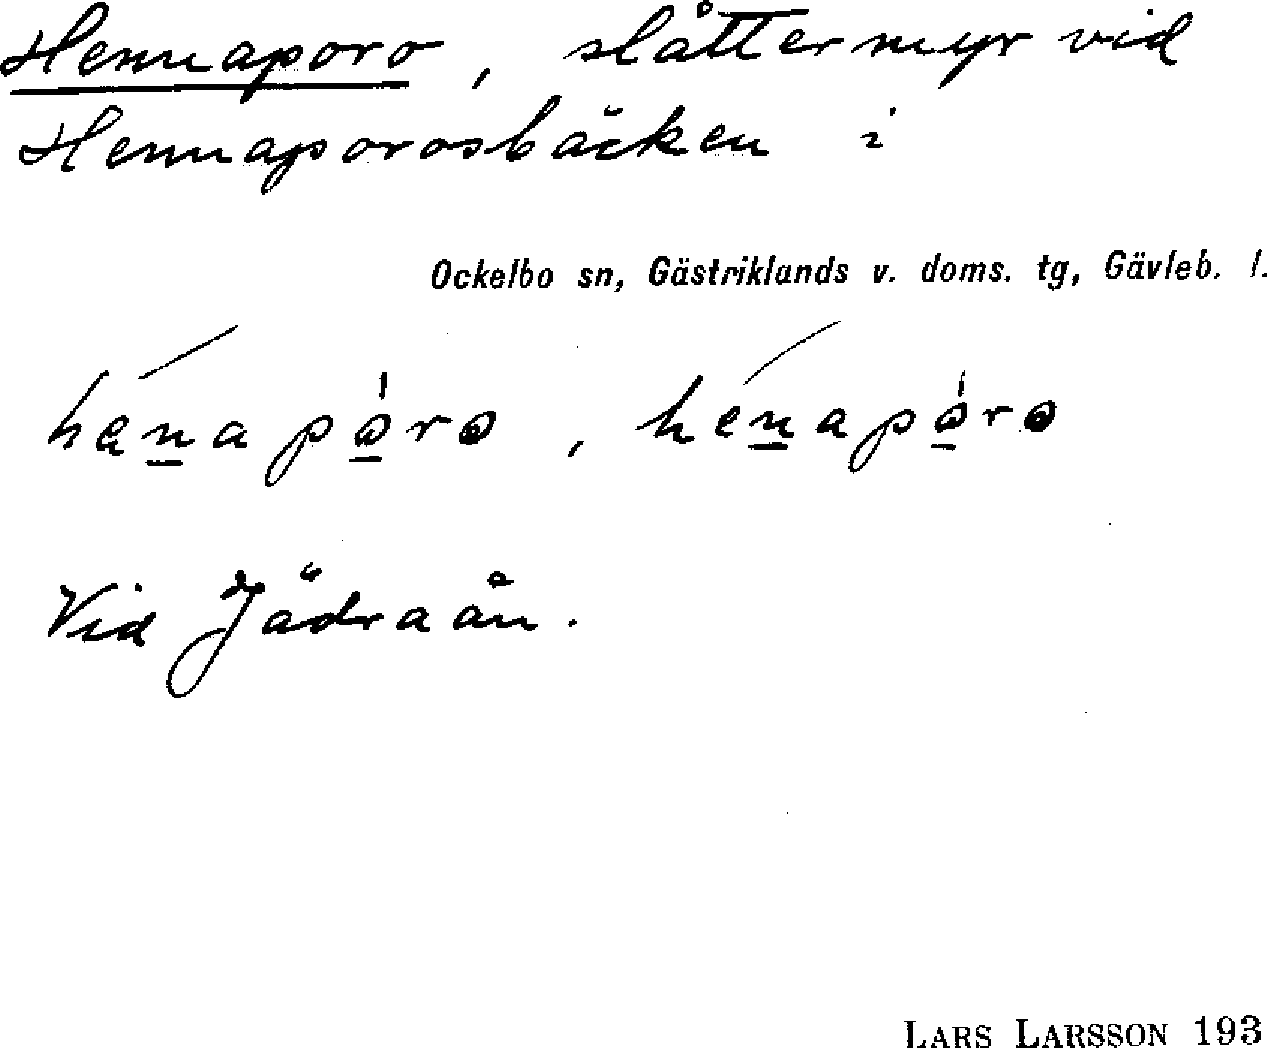 Hennaporo, slåttermyr vid
Hennaporosbäcken i
Ockelbo sn, Gästriklands v. doms. tg, Gävleb. l.
Vid Jädraån.
LARS LARSSON 193